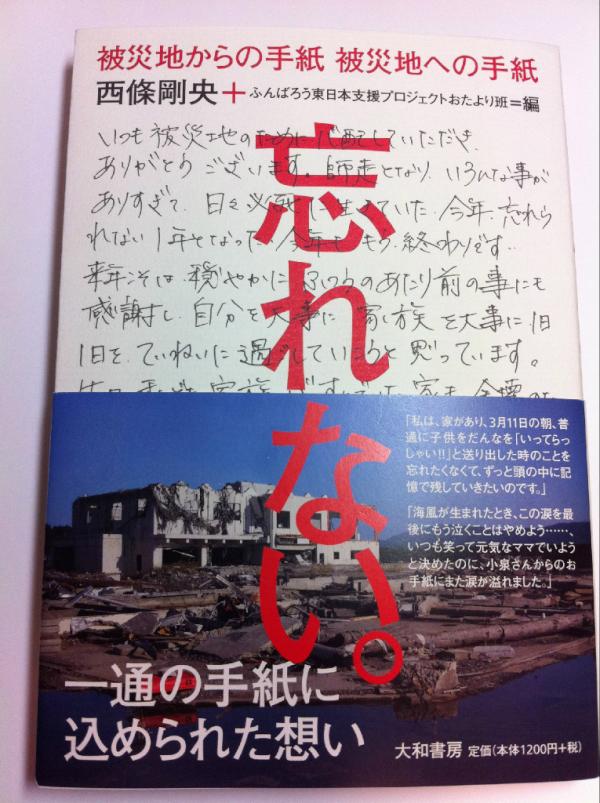 被災地からの手紙 被災地への手紙
西條剛央+ふんばろう東日本支援プロジェクトおたより班=編
忘れない。
いつも被災地のために心配していただき、
ありがとうございます。師走となり、いろんな事が
ありすぎて、日々必死に生きていた、今年、忘れら
れない1年となった今年も、もう、終わりです。
来年こそは、穏やかに、ふつうのあたり前の事にも
感謝し、自分を大事に、家族を大事に、1日
1日を、ていねいに過ごしていこうと思っています。
「私は、家があり、3月11日の朝、普
通に子供をだんなを「いってらっ
しゃい!!」と送り出した時のことを
忘れたくなくて、ずっと頭の中に記
憶で残していきたいのです。」
「海風が生まれたとき、この涙を最
後にもう泣くことはやめよう……、
いつも笑って元気なママでいよう
と決めたのに、小泉さんからのお
手紙にまた涙が溢れました。」
一通の手紙に
込められた想い
大和書房 定価(本体1200円+税)